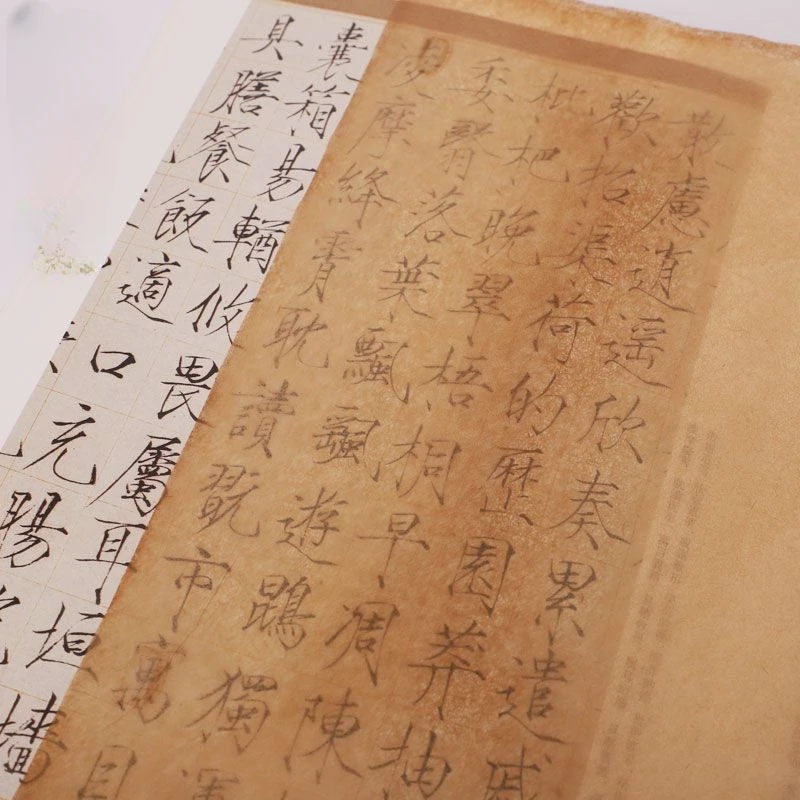 散慮逍遥欣奏累遣慼
歡招渠荷的歷園莽抽
枇杷晚翠梧桐早凋陳
委翳落葉飄飖遊鵾獨運
凌摩絳霄耽讀翫市寓目
囊箱易輶攸畏屬耳垣墻
具膳餐飯適口充腸